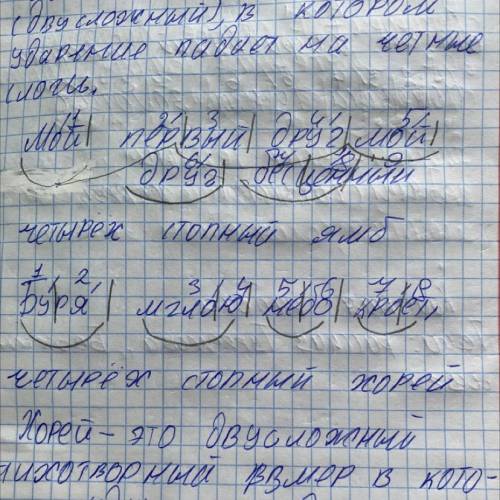 (двусложный), в котором
ударение падает на четные
слоги.
1 2 3 4 5
Мой первый друг мой
6 7 8 9
друг бесценный
четырёх стопный ямб
1 2 3 4 5 6 7 8
Буря мглою небо кроет,
четырёх стопный хорей
Хорей - это двусложный
стихотворный рзмер в кото-